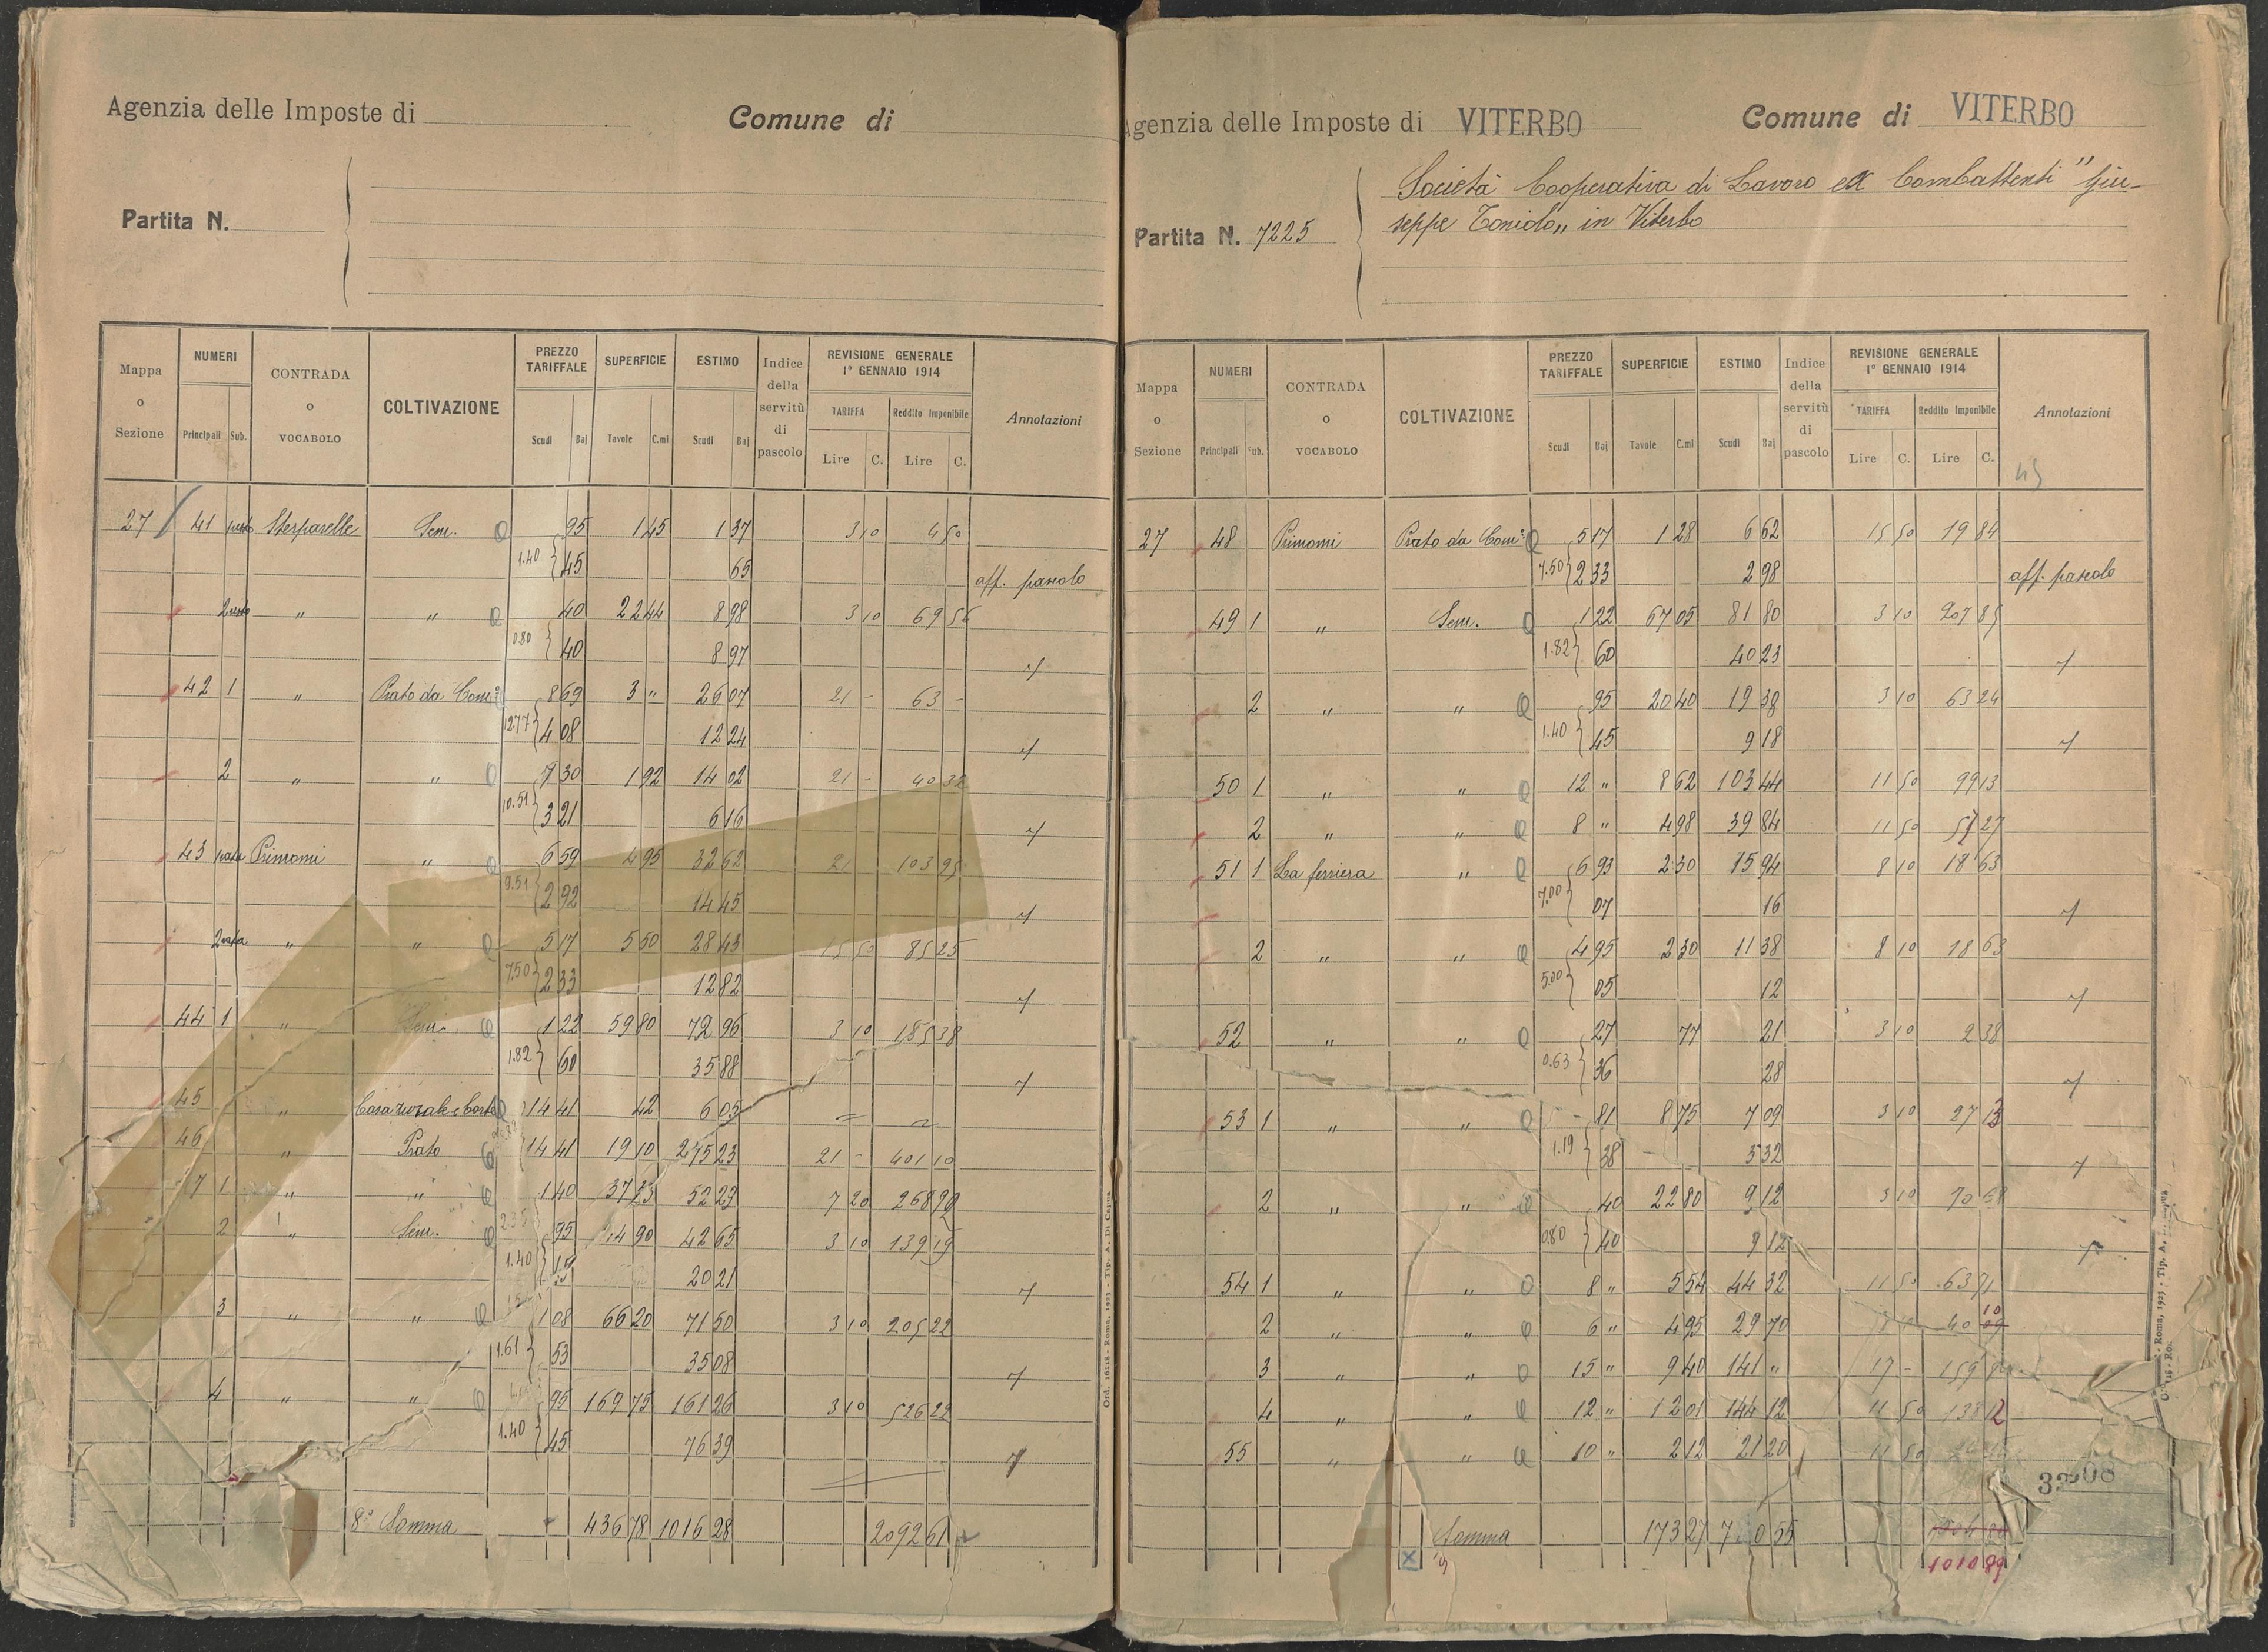 Agenzia delle Imposte di
Comune di
Partita N.
Mappa o Sezione
NUMERI
Principali Sub.
CONTRADA o VOCABOLO
COLTIVAZIONE
PREZZO TARIFFALE
Scudi Baj
SUPERFICIE
Tavole C.mi
ESTIMO
Scudi Baj
Indice della servitù di pascolo
REVISIONE GENERALE 1° GENNAIO 1914
TARIFFA Reddito Imponibile
Lire C. Lire C.
Annotazioni
27 41 Sterparelle Sem. 95 1 45 1 37 3 10 4 50
1.40 45 65 aff. pascolo
2 " " 40 22 44 8 98 3 10 69 56
0.80 40 8 97 "
42 1 " Prato da Com.e 8 69 3 " 26 07 21 - 63 -
12.77 4 08 12 24 "
2 " " 7 30 1 92 14 02 21 - 40 32
10.51 3 21 6 16 "
43 Primomi " 6 59 4 95 32 62 21 103 95
9.51 2 92 14 45 "
2 " " 5 17 5 50 28 43 15 50 85 25
7.50 2 33 12 82 "
44 1 " Sem. 1 22 59 80 72 96 3 10 185 38
1.82 60 35 88 "
45 " Casa rurale e Corte 14 41 42 6 05
46 " Prato 14 41 19 10 275 23 21 - 401 10
7 1 " " 1 40 37 35 52 29 7 20 268 92
2 " Sem. 95 44 90 42 65 3 10 139 19
1.40 20 21 "
3 " " 1 08 66 20 71 50 3 10 205 22
1.61 53 35 08 "
4 " " 95 169 75 161 26 3 10 526 22
1.40 45 76 39 "
8ª Somma 436 78 1016 28 2092 61
Ord. 16118 - Roma, 1923 - Tip. A. Di Capua
Agenzia delle Imposte di VITERBO
Comune di VITERBO
Partita N. 7225
Società Cooperativa di Lavoro ex Combattenti "Giu-
seppe Toniolo" in Viterbo
Mappa o Sezione
NUMERI
Principali Sub.
CONTRADA o VOCABOLO
COLTIVAZIONE
PREZZO TARIFFALE
Scudi Baj
SUPERFICIE
Tavole C.mi
ESTIMO
Scudi Baj
Indice della servitù di pascolo
REVISIONE GENERALE 1° GENNAIO 1914
TARIFFA Reddito Imponibile
Lire C. Lire C.
Annotazioni
27 48 Primomi Prato da Com.e 5 17 1 28 6 62 15 50 19 84
7.50 2 33 2 98 aff. pascolo
49 1 " Sem. 1 22 67 05 81 80 3 10 207 85
1.82 60 40 23 "
2 " " 95 20 40 19 38 3 10 63 24
1.40 45 9 18 "
50 1 " " 12 " 8 62 103 44 11 50 99 13
2 " " 8 " 4 98 39 84 11 50 57 27
51 1 La ferriera " 6 93 2 30 15 94 8 10 18 63
7.00 07 16 "
2 " " 4 95 2 30 11 38 8 10 18 63
5.00 05 12 "
52 " " 27 77 21 3 10 2 38
0.63 36 28 "
53 1 " " 81 8 75 7 09 3 10 27 13
1.19 38 3 32 "
2 " " 40 22 80 9 12 3 10 70 68
0.80 40 9 12 "
54 1 " " 8 " 5 54 44 32 11 50 63 71
2 " " 6 " 4 95 29 70 40 10
3 " " 15 " 9 40 141 " 17 - 159
4 " " 12 " 12 01 144 12 11 50 138 12
55 " " 10 " 2 12 21 20 11 50
Somma 173 27 7 0 55
1010 89